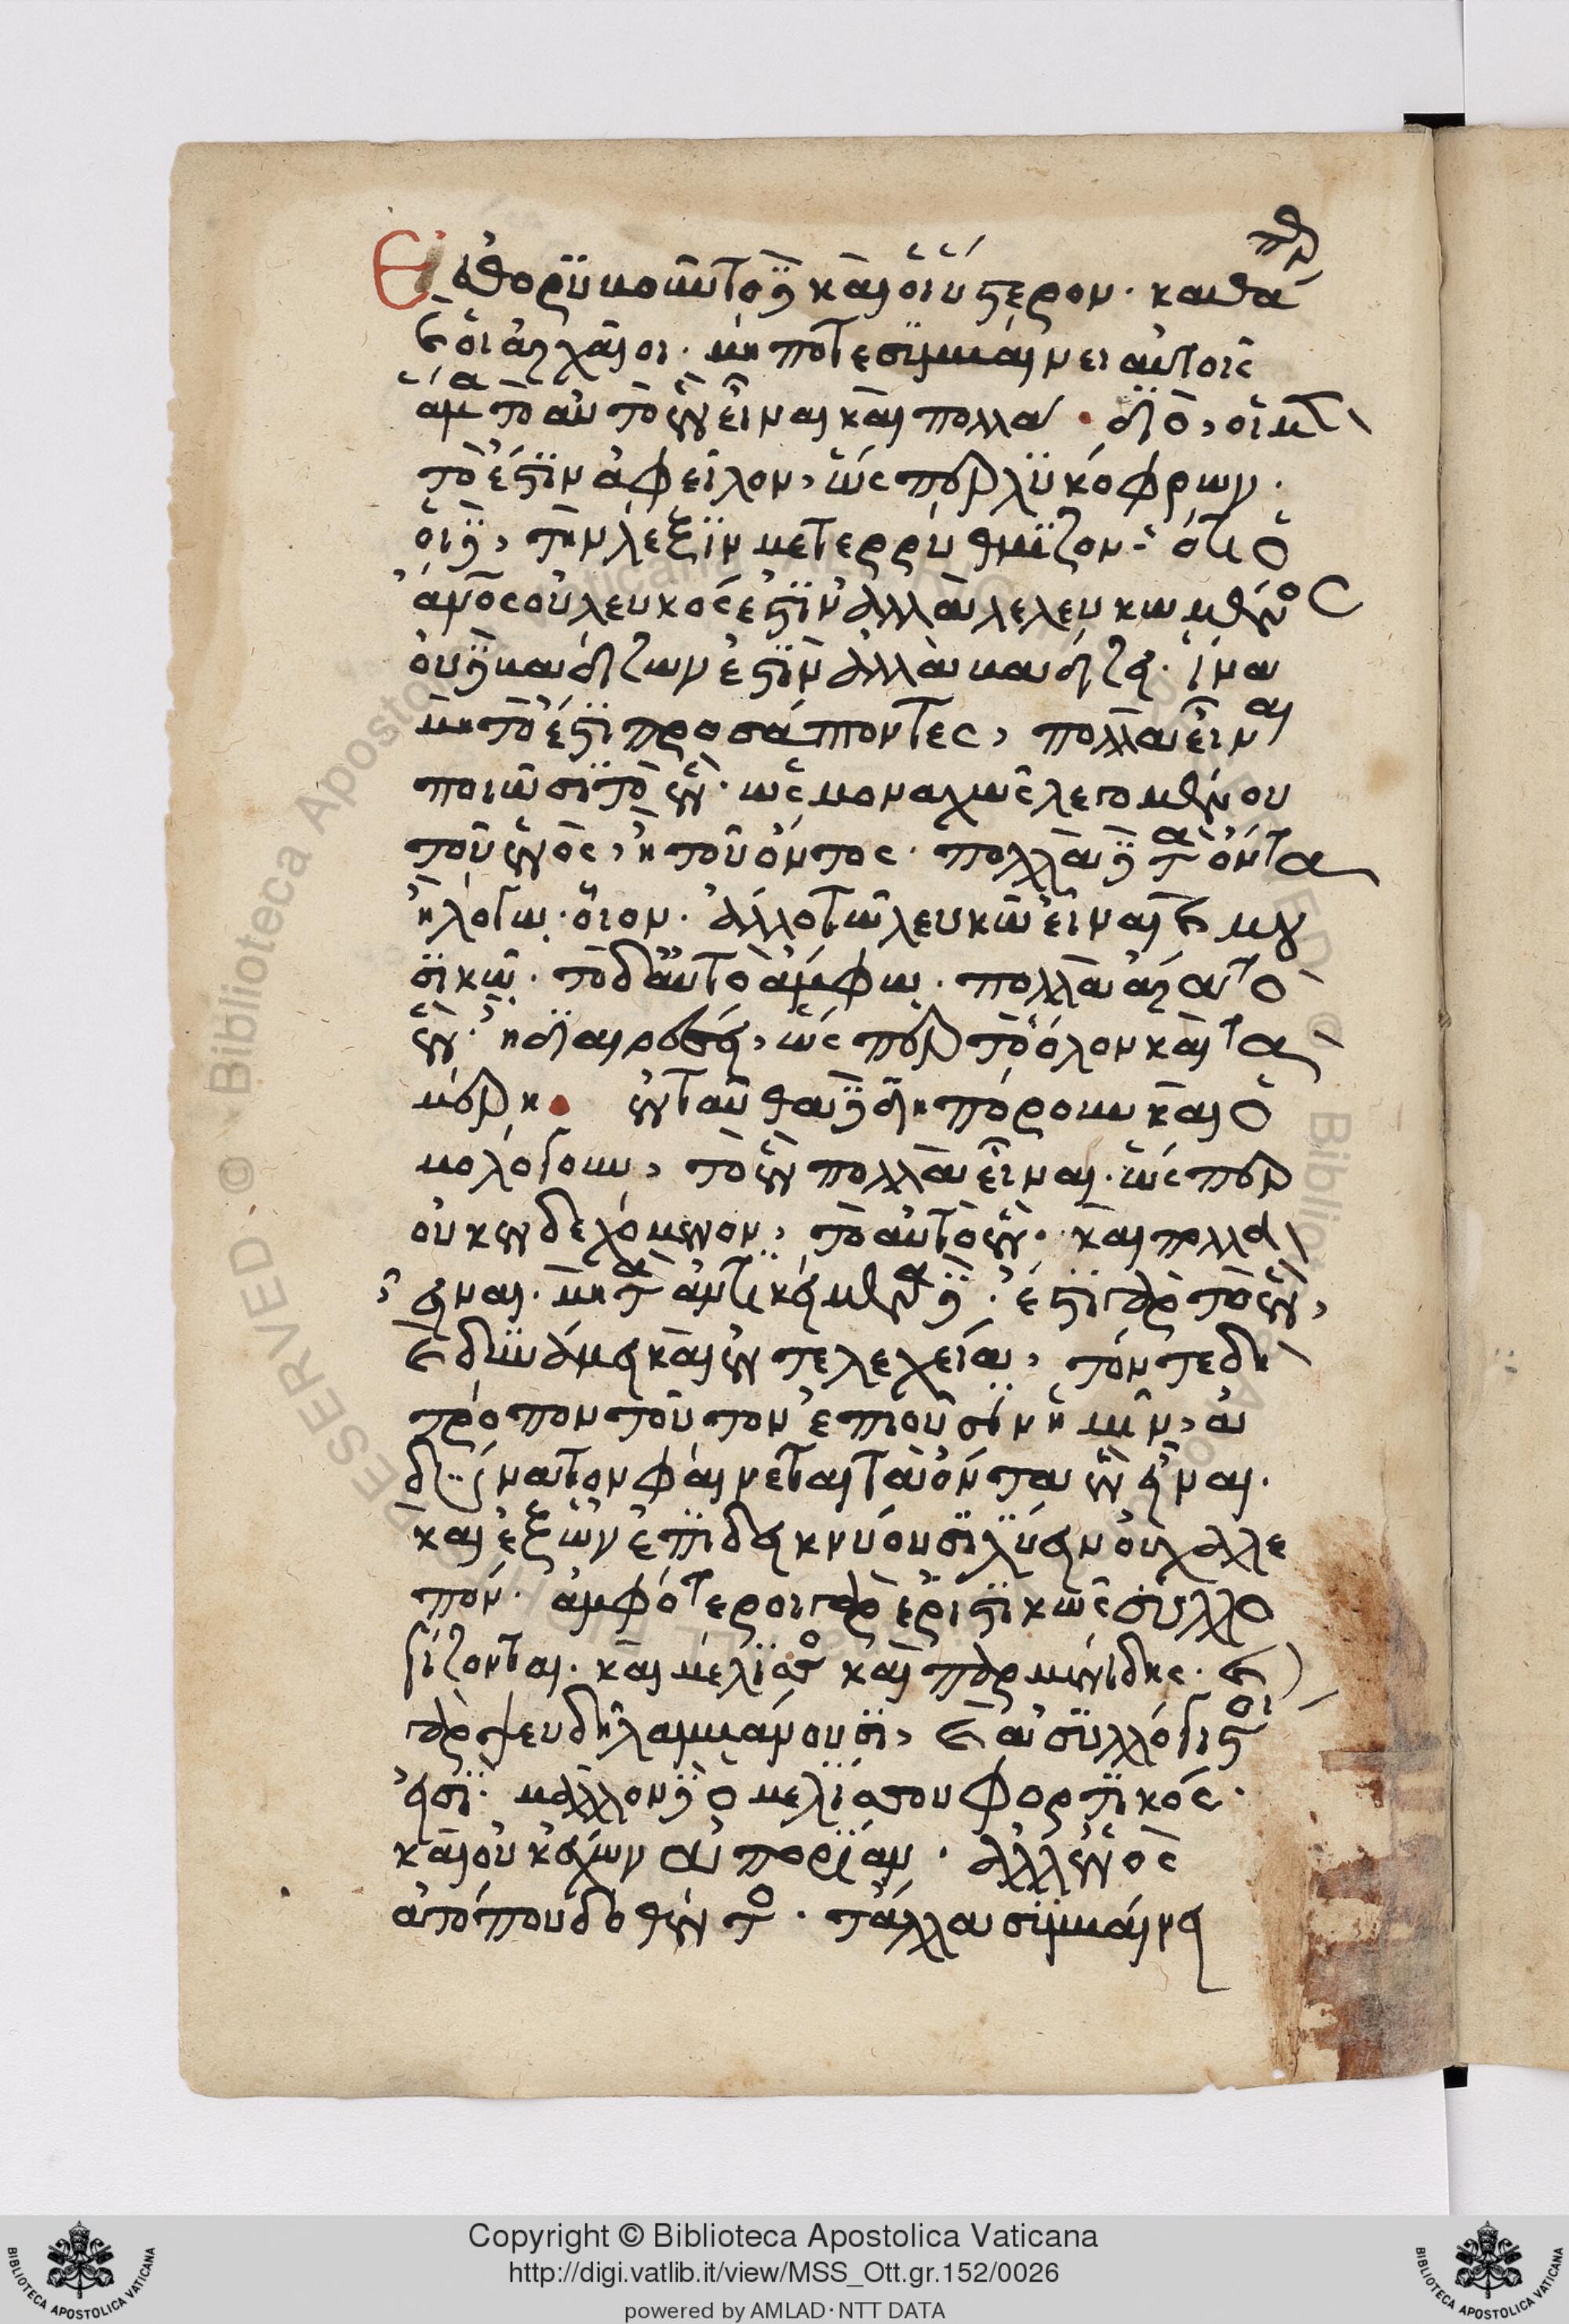 Ἐθορυβοῦντο δὲ καὶ οἱ ὕστερον. καθάπερ
καὶ οἱ ἀρχαῖοι. μή ποτε συμβαίνει αὐτοῖς
ἅμα τὸ αὐτὸ ἓν εἶναι καὶ πολλά. διὸ, οἱ μὲν
τὸ ἐστὶν ἀφεῖλον, ὥσπερ λυκόφρων.
οἱ δὲ, τὴν λέξιν μετερρύθμιζον. ὅτι ὁ
ἄνος οὐ λευκός ἐστιν ἀλλὰ λελευκωμένος
οὐδὲ βαδίζων ἐστὶν ἀλλὰ βαδίζει. ἵνα
μὴ τὸ ἐστὶ προσάπτοντες, πολλὰ εἶναι
ποιῶσι τὸ ἕν. ὡς μοναχῶς λεγομένου
τοῦ ἑνὸς, ἢ τοῦ ὄντος. πολλὰ δὲ τὰ ὄντα
ἢ λόγω. οἷον. ἄλλο τῶ λευκῶ εἶναι καὶ μου
σικῶ. τὸ δ' αὐτὸ ἄμφω. πολλὰ ἄρα τὸ
ἕν. ἢ διαιρέσει, ὥσπερ τὸ ὅλον καὶ τὰ
μέρη. ἐνταῦθα δὲ ἤδη ἠπόρουν καὶ ὁ
μολόγουν, τὸ ἓν πολλὰ εἶναι. ὥσπερ
οὐκ ἐνδεχόμενον, τὸ αὐτὸ ἓν. καὶ πολλὰ
εἶναι. μὴ τὰ ἀντικείμενα δέ. ἔστι γὰρ τὸ ἓν,
καὶ δυνάμει καὶ ἐντελεχεία, τόν τε δὴ
τρόπον τοῦτον ἐπιοῦσιν ἡμῖν, ἀ
δύνατον φαίνεται τὰ ὄντα ἓν εἶναι.
καὶ ἐξ ὧν ἐπιδεικνύουσι λύειν οὐ χαλλε
πόν. ἀμφότεροι γὰρ ἐριστικῶς συλλο
γίζονται. καὶ μέλισσος καὶ παρμενίδης. καὶ
γὰρ ψευδῆ λαμβάνουσι, καὶ ἀσυλλόγιστοί
εἰσι. μᾶλλον δὲ ὁ μελίσσου φορτικός.
καὶ οὐκ ἔχων ἀπορίαν. ἀλλ' ἑνὸς
ἀτόπου δοθέντος. τἄλλα συμβαίνει
Copyright © Biblioteca Apostolica Vaticana
http://digi.vatlib.it/view/MSS_Ott.gr.152/0026
powered by AMLAD·NTT DATA